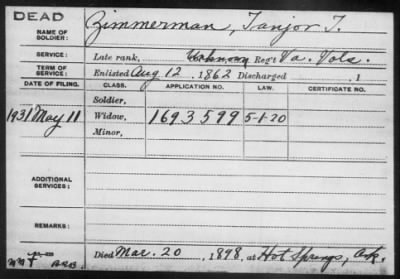 DEAD
NAME OF SOLDIER: Zimmerman, Tanjor T.
SERVICE: Late rank, Unknown Reg't Va. Vols.
TERM OF SERVICE: Enlisted Aug 12, 1862 Discharged , 1
DATE OF FILING. CLASS. APPLICATION NO. LAW. CERTIFICATE NO.
Soldier,
1931 May 11 Widow, 1693599 5-1-20
Minor,
ADDITIONAL SERVICES:
REMARKS:
Died Mar. 20, 1898, at Hot Springs, Ark.